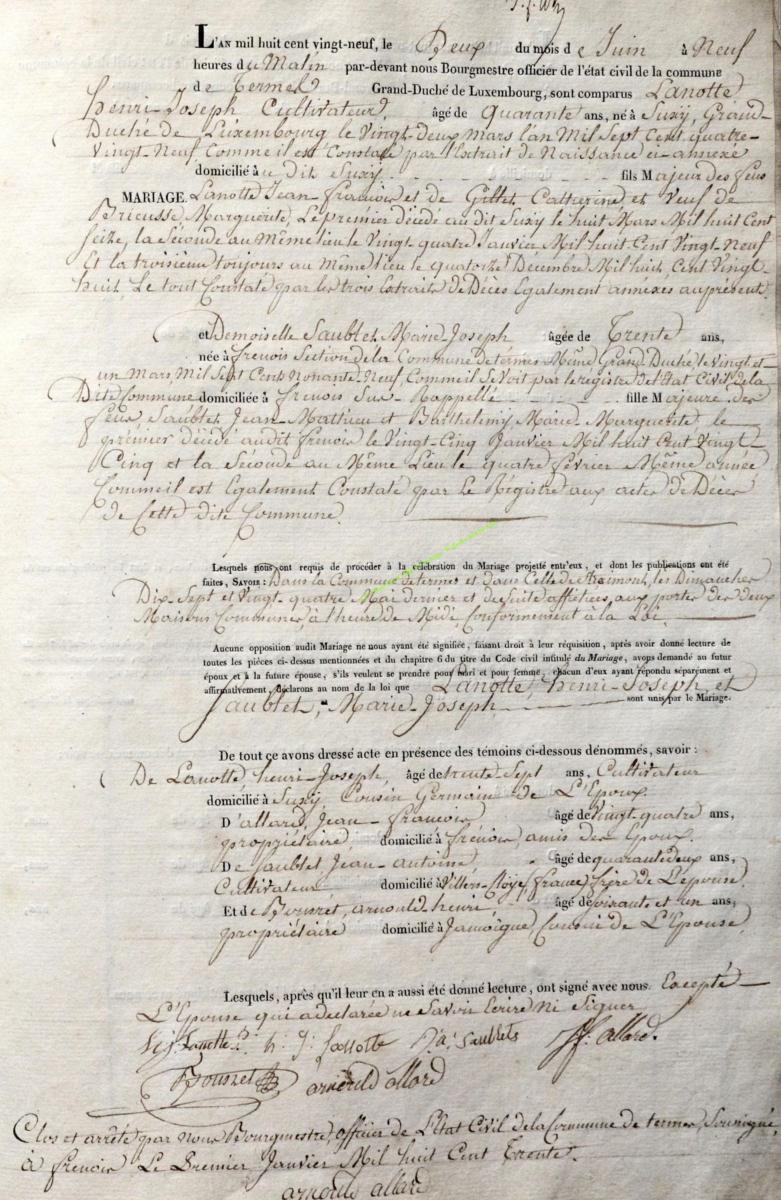 L'AN mil huit cent vingt-neuf, le Deux du mois de Juin à Neuf
heures du Matin par-devant nous Bourgmestre officier de l'état civil de la commune
de Termes Grand-Duché de Luxembourg, sont comparus Lanotte
henri-Joseph Cultivateur, âgé de Quarante ans, né à Suxy, Grand-
Duché de Luxembourg le Vingt-deux Mars lan Mil Sept Cent quatre-
Vingt-Neuf Comme il est Constaté par l'Extrait de Naissance ci-annexé
domicilié au dit Suxy fils Majeur des feus
MARIAGE. Lanotte Jean-francois et de Gillet, Catherine et Veuf de
Brieusse, Marguerite, Le premier décédé au dit Suxy le huit Mars Mil huit Cent
Seize, la Séconde au Même lieu le Vingt quatre Janvier Mil huit Cent Vingt-Neuf
Et la troisieme toujours au Même lieu le quatorze Décembre Mil huit Cent Vingt-
huit, Le tout Constaté par les trois Extraits de Décès Egalement annexés au présent.
et Demoiselle Saublet, Marie-Joseph âgée de Trente ans,
née à frenois Section de la Commune de termes Même Grand Duché, le vingt et
un Mars, Mil Sept Cent Nonante-Neuf, Comme il Se Voit par le registre de l'Etat Civil de la
Dite Commune domiciliée à frenois Sus-Rappellé fille Majeure des
feus Saublet, Jean-Mathieu et Barthelimy Marie Marguerite, le
prémier décédé audit frenois le Vingt-Cinq Janvier Mil huit Cent Vingt-
Cinq et la Séconde au Même Lieu le quatre février Même année
Comme il est Egalement Constaté par Le Régistre aux actes de Décès
de Cette dite Commune.
Lesquels nous ont requis de procéder à la célébration du Mariage projetté entr'eux, et dont les publications ont été
faites, SAVOIR : Dans la Commune de termes et dans Celle de Straimont, les Dimanches
Dix-Sept et Vingt-quatre Mai dernier et de suite affichées, aux portes des deux
Maisons Communes, à l'heure de Midi Conformément à la Loi.
Aucune opposition audit Mariage ne nous ayant été signifiée, faisant droit à leur réquisition, après avoir donné lecture de
toutes les pièces ci-dessus mentionnées et du chapitre 6 du titre du Code civil intitulé du Mariage, avons demandé au futur
époux et à la future épouse, s'ils veulent se prendre pour mari et pour femme, chacun d'eux ayant répondu séparément et
affirmativement, déclarons au nom de la loi que Lanotte, henri-Joseph et
Saublet, Marie-Joseph sont unis par le Mariage.
De tout ce avons dressé acte en présence des témoins ci-dessous dénommés, savoir :
De Lanotte henri-Joseph, âgé de trente-Sept ans, Cultivateur
domicilié à Suxy, Cousin Germain de L'Epoux
D'allard, Jean-francois âgé de vingt-quatre ans,
propriétaire domicilié à frénois, amis des Epoux.
De Saublet Jean-antoine âgé de quarante deux ans,
Cultivateur domicilié à Villers- (france) frère de L'épouse.
Et de arnould-henri âgé de soixante et un ans,
propriétaire domicilié à Jamoigne, Cousin de L'Epouse
Lesquels, après qu'il leur en a aussi été donné lecture, ont signé avec nous Excepté
L'Epouse qui a declarée ne Savoir Ecrire Ni Signer
h. J. Lanotte J. a. Saublets J. f. allard.
arnould allard
Clos et arrété par nous Bourgmestre, officier de L'Etat Civil de la Commune de termes, Soussigné,
à frenois Le Premier Janvier Mil huit Cent Trente.
arnould allard